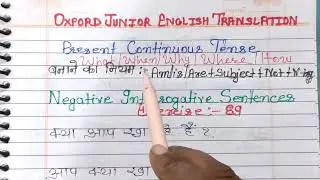 OXFORD JUNIOR ENGLISH TRANSLATION
Present Continuous Tense
What/When/Why/Where/How
बनाने का नियम :- Am/is/Are+Subject+Not+V ing
Negative Interrogative Sentences
Exercise :- 89
क्या आप खा रहे हैं ?
आप क्या खा